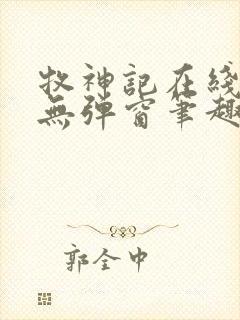 牧神記在綫
無彈窗筆趣
郭全中